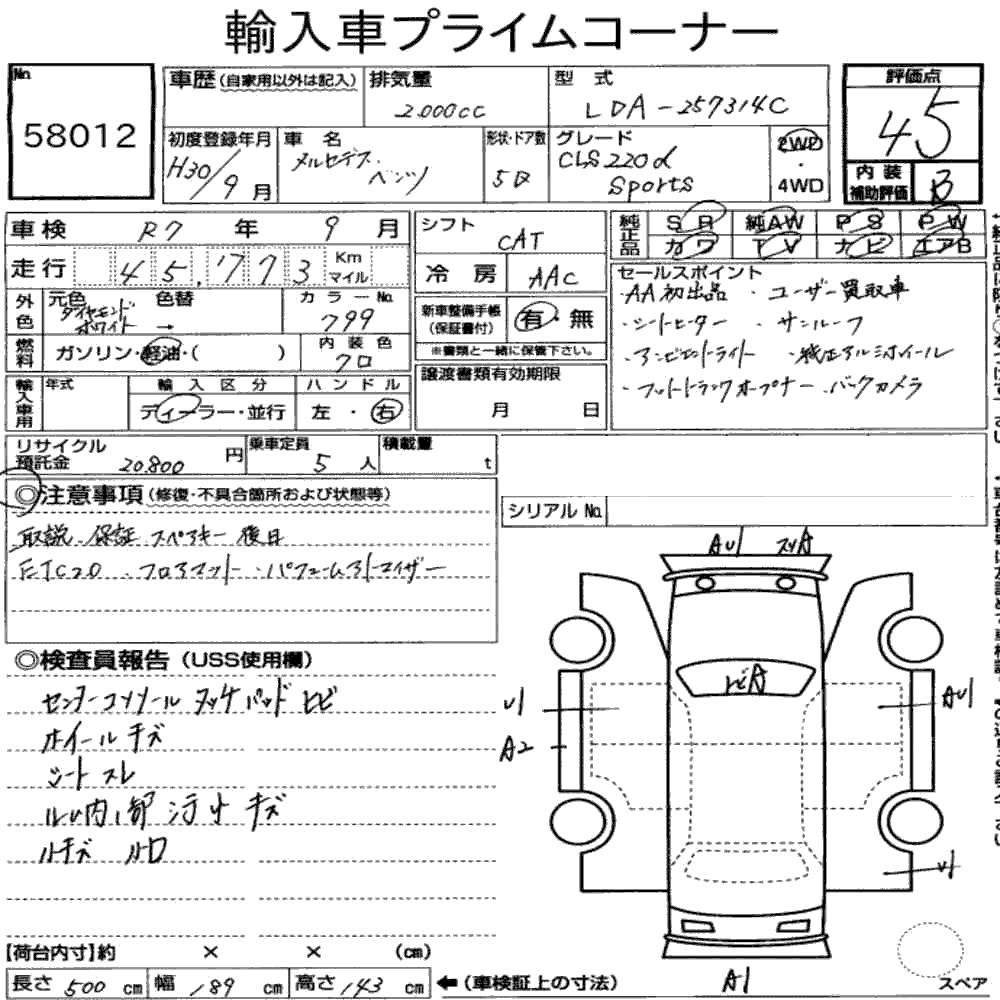 輸入車プライムコーナー
No.
58012
車歴(自家用以外は記入)
排気量
2.000cc
型式
LDA-257314C
評価点
4.5
初度登録年月
H30/9月
車名
メルセデス.ベンツ
形状・ドア数
5D
グレード
CLS220d
Sports
2WD
・
4WD
内装
補助評価
B
車検 R7年 9月
走行 45,773 Km
マイル
シフト
CAT
冷房
AAC
純正品
SR 純AW PS PW
カワ TV ナビ エアB
外色
元色 色替
ダイヤモンド
ホワイト →
カラーNo.
799
燃料
ガソリン・軽油・( )
内装色
クロ
新車整備手帳
(保証書付)
有・無
※書類と一緒に保管下さい。
セールスポイント
・AA初出品 ・ユーザー買取車
・シートヒーター ・サンルーフ
・アンビエントライト ・純正アルミホイール
・フットトランクオープナー ・バックカメラ
輸入車用
年式
輸入区分
ディーラー・並行
ハンドル
左・右
譲渡書類有効期限
月 日
リサイクル
預託金 20.800円
乗車定員
5人
積載量
t
シリアルNo.
◎注意事項(修復・不具合箇所および状態等)
取説.保証 スペアキー後日
ETC2.0 ・フロアマット ・パフュームアトマイザー
◎検査員報告(USS使用欄)
センターコンソール タッチパッド ヒビ
ホイール キズ
シート スレ
内 部 汚れ キズ
AU1
トビA
U1
A2
AU1
U1
A1
【荷台内寸】約 × × (cm)
長さ 500 cm 幅 189 cm 高さ 143 cm
←(車検証上の寸法)
スペア